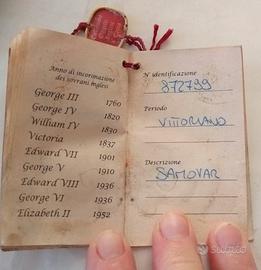 Anno di incoronazione
dei sovrani inglesi
George III 1760
George IV 1820
William IV 1830
Victoria 1837
Edward VII 1901
George V 1910
Edward VIII 1936
George VI 1936
Elizabeth II 1952
N° identificazione
872799
Periodo
VITTORIANO
Descrizione
SAMOVAR
subito